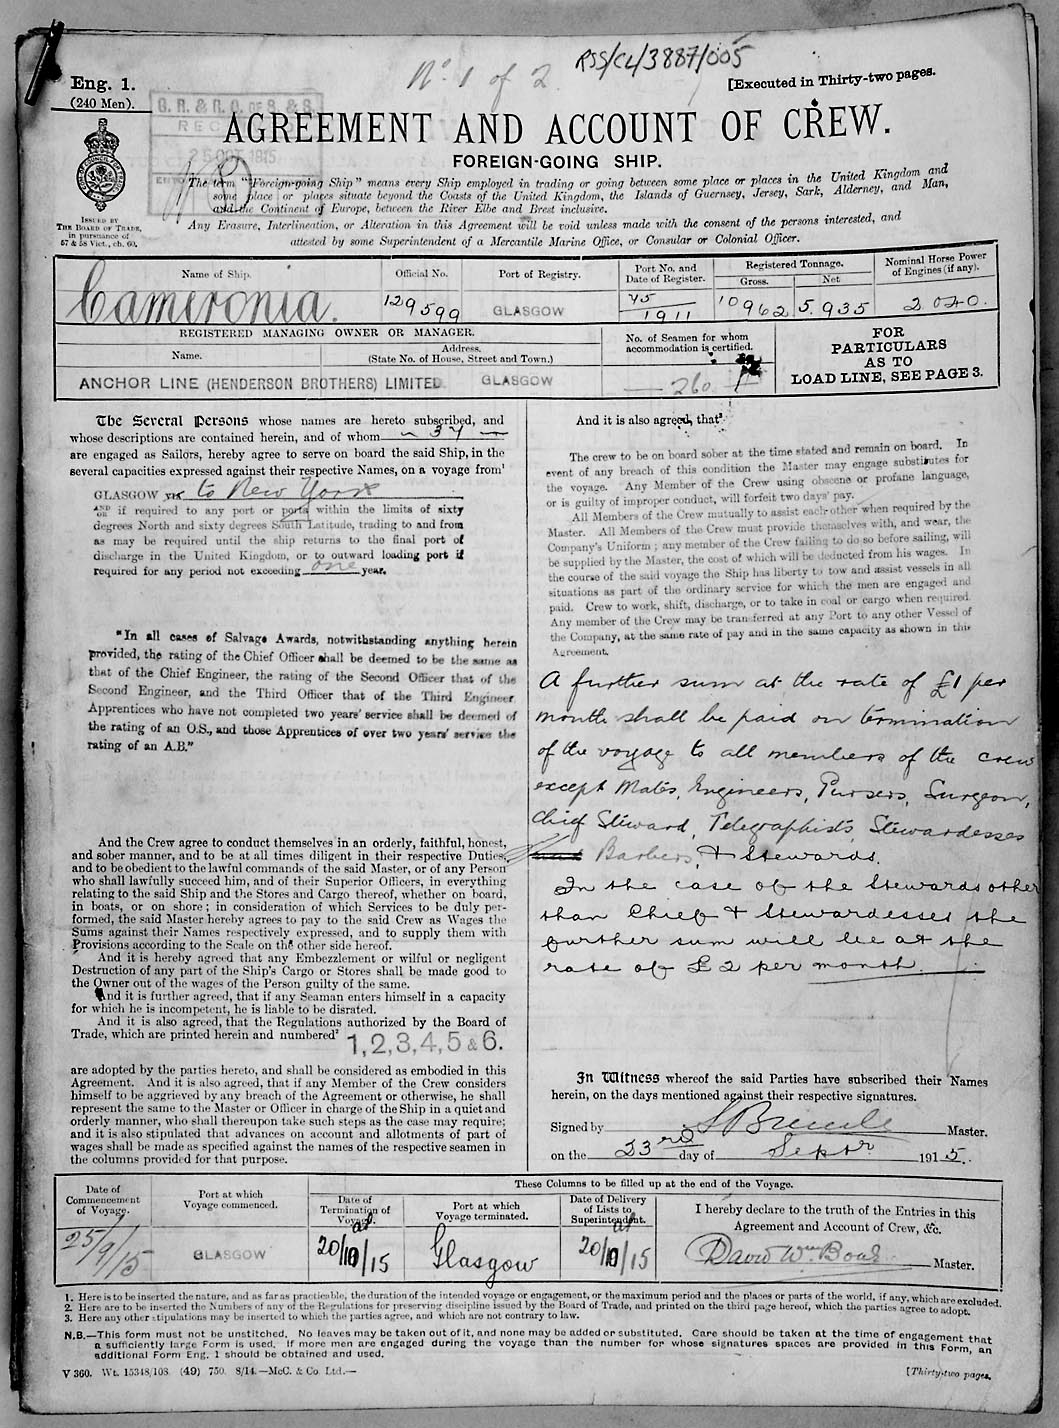 RSS/CL/3887/005
No. 1 of 2
Eng. 1.
(240 Men).
[Executed in Thirty-two pages.
AGREEMENT AND ACCOUNT OF CREW.
FOREIGN-GOING SHIP.
The term "Foreign-going Ship" means every Ship employed in trading or going between some place or places in the United Kingdom and
some place or places situate beyond the Coasts of the United Kingdom, the Islands of Guernsey, Jersey, Sark, Alderney, and Man,
and the Continent of Europe, between the River Elbe and Brest inclusive.
Any Erasure, Interlineation, or Alteration in this Agreement will be void unless made with the consent of the persons interested, and
attested by some Superintendent of a Mercantile Marine Office, or Consular or Colonial Officer.
ISSUED BY
THE BOARD OF TRADE,
in pursuance of
57 & 58 Vict., ch. 60.
Name of Ship.
Official No.
Port of Registry.
Port No. and
Date of Register.
Registered Tonnage.
Gross.
Net
Nominal Horse Power
of Engines (if any).
Cameronia.
129599
GLASGOW
45
1911
10962
5.935
2040.
REGISTERED MANAGING OWNER OR MANAGER.
Name.
Address.
(State No. of House, Street and Town.)
No. of Seamen for whom
accommodation is certified.
FOR
PARTICULARS
AS TO
LOAD LINE, SEE PAGE 3.
ANCHOR LINE (HENDERSON BROTHERS) LIMITED.
GLASGOW
260
The Several Persons whose names are hereto subscribed, and
whose descriptions are contained herein, and of whom 34
are engaged as Sailors, hereby agree to serve on board the said Ship, in the
several capacities expressed against their respective Names, on a voyage from¹
GLASGOW to New York
AND OR if required to any port or ports within the limits of sixty
degrees North and sixty degrees South Latitude, trading to and from
as may be required until the ship returns to the final port of
discharge in the United Kingdom, or to outward loading port if
required for any period not exceeding one year.
"In all cases of Salvage Awards, notwithstanding anything herein
provided, the rating of the Chief Officer shall be deemed to be the same as
that of the Chief Engineer, the rating of the Second Officer that of the
Second Engineer, and the Third Officer that of the Third Engineer
Apprentices who have not completed two years' service shall be deemed of
the rating of an O.S., and those Apprentices of over two years' service the
rating of an A.B."
And the Crew agree to conduct themselves in an orderly, faithful, honest,
and sober manner, and to be at all times diligent in their respective Duties,
and to be obedient to the lawful commands of the said Master, or of any Person
who shall lawfully succeed him, and of their Superior Officers, in everything
relating to the said Ship and the Stores and Cargo thereof, whether on board,
in boats, or on shore; in consideration of which Services to be duly per-
formed, the said Master hereby agrees to pay to the said Crew as Wages the
Sums against their Names respectively expressed, and to supply them with
Provisions according to the Scale on the other side hereof.
And it is hereby agreed that any Embezzlement or wilful or negligent
Destruction of any part of the Ship's Cargo or Stores shall be made good to
the Owner out of the wages of the Person guilty of the same.
And it is further agreed, that if any Seaman enters himself in a capacity
for which he is incompetent, he is liable to be disrated.
And it is also agreed, that the Regulations authorized by the Board of
Trade, which are printed herein and numbered² 1,2,3,4,5 & 6.
are adopted by the parties hereto, and shall be considered as embodied in this
Agreement. And it is also agreed, that if any Member of the Crew considers
himself to be aggrieved by any breach of the Agreement or otherwise, he shall
represent the same to the Master or Officer in charge of the Ship in a quiet and
orderly manner, who shall thereupon take such steps as the case may require;
and it is also stipulated that advances on account and allotments of part of
wages shall be made as specified against the names of the respective seamen in
the columns provided for that purpose.
And it is also agreed, that³
The crew to be on board sober at the time stated and remain on board. In
event of any breach of this condition the Master may engage substitutes for
the voyage. Any Member of the Crew using obscene or profane language,
or is guilty of improper conduct, will forfeit two days' pay.
All Members of the Crew mutually to assist each other when required by the
Master. All Members of the Crew must provide themselves with, and wear, the
Company's Uniform; any member of the Crew failing to do so before sailing, will
be supplied by the Master, the cost of which will be deducted from his wages. In
the course of the said voyage the Ship has liberty to tow and assist vessels in all
situations as part of the ordinary service for which the men are engaged and
paid. Crew to work, shift, discharge, or to take in coal or cargo when required.
Any member of the Crew may be transferred at any Port to any other Vessel of
the Company, at the same rate of pay and in the same capacity as shown in this
Agreement.
A further sum at the rate of £1 per
month shall be paid on termination
of the voyage to all members of the crew
except Mates, Engineers, Pursers, Surgeon,
Chief Steward, Telegraphists Stewardesses
Barbers, & Stewards.
In the case of the Stewards other
than Chief & Stewardesses the
further sum will be at the
rate of £2 per month.
In Witness whereof the said Parties have subscribed their Names
herein, on the days mentioned against their respective signatures.
Signed by Master.
on the 23rd day of Septr 1915.
Date of
Commencement
of Voyage.
Port at which
Voyage commenced.
These Columns to be filled up at the end of the Voyage.
Date of
Termination of
Voyage.
Port at which
Voyage terminated.
Date of Delivery
of Lists to
Superintendent.
I hereby declare to the truth of the Entries in this
Agreement and Account of Crew, &c.
25/9/15
GLASGOW
20/10/15
Glasgow
20/10/15
David Wm Bone Master.
1. Here is to be inserted the nature, and as far as practicable, the duration of the intended voyage or engagement, or the maximum period and the places or parts of the world, if any, which are excluded.
2. Here are to be inserted the Numbers of any of the Regulations for preserving discipline issued by the Board of Trade, and printed on the third page hereof, which the parties agree to adopt.
3. Here any other stipulations may be inserted to which the parties agree, and which are not contrary to law.
N.B.—This form must not be unstitched. No leaves may be taken out of it, and none may be added or substituted. Care should be taken at the time of engagement that
a sufficiently large Form is used. If more men are engaged during the voyage than the number for whose signatures spaces are provided in this Form, an
additional Form Eng. 1 should be obtained and used.
V 360. Wt. 15348/108 (49) 750. 8/14.—McC. & Co. Ltd.—
[Thirty-two pages.